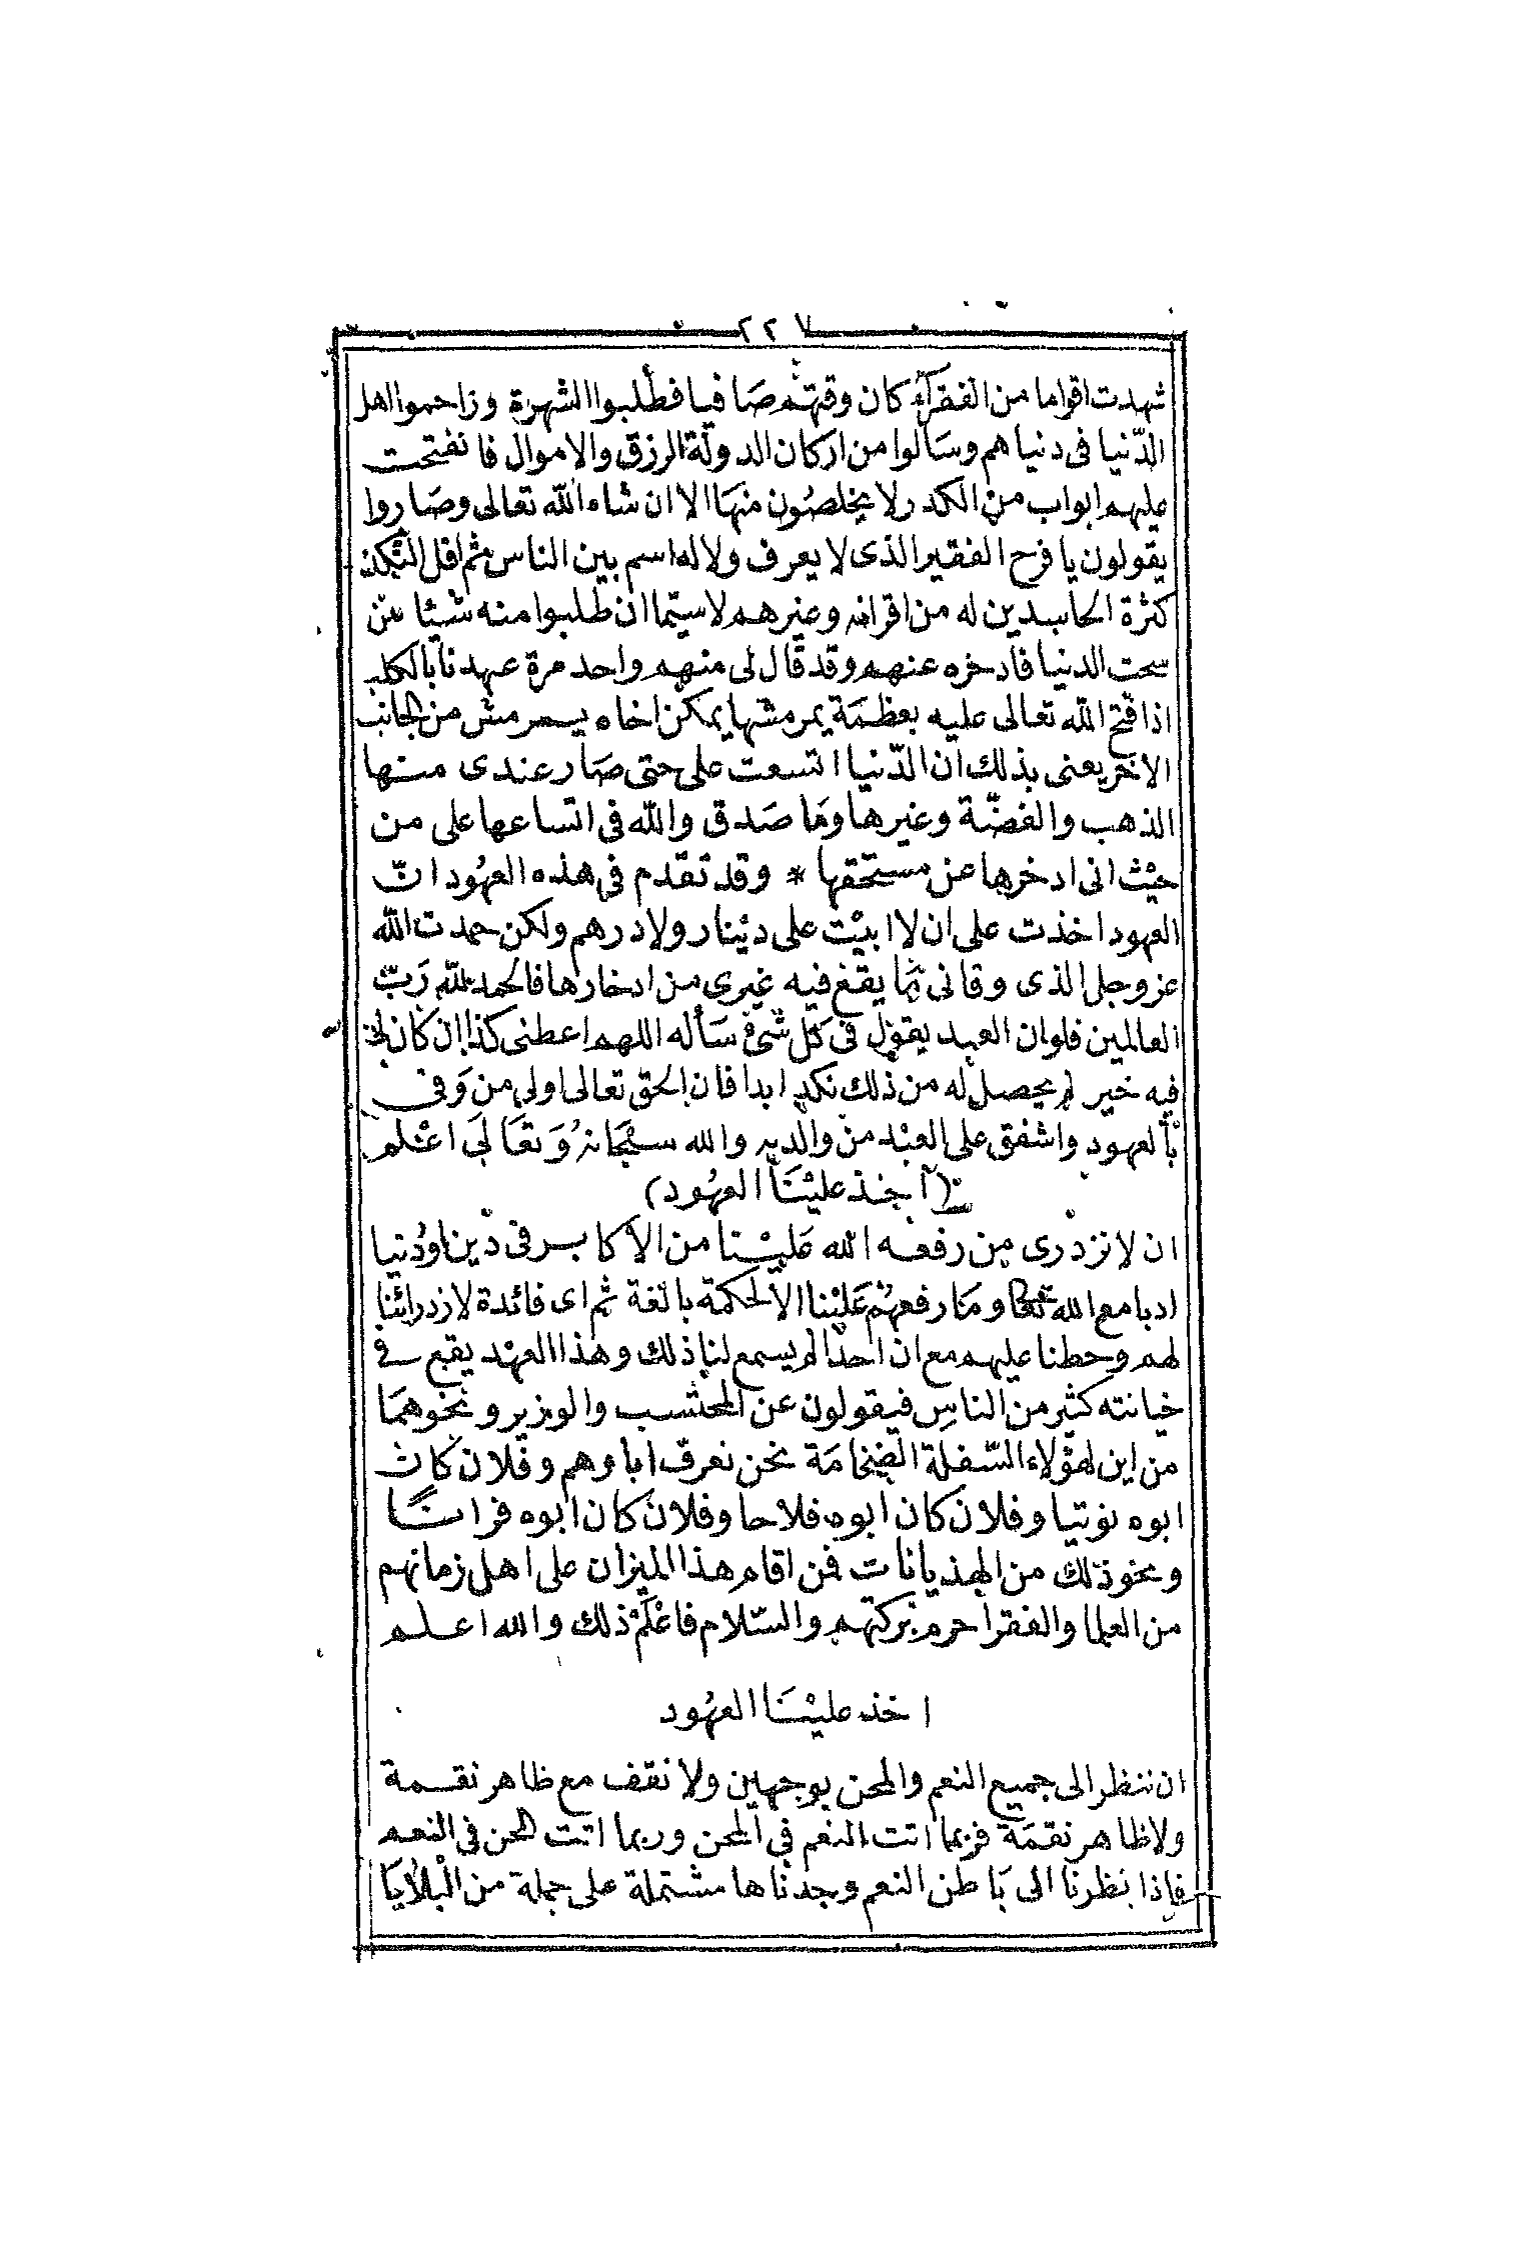 ٢٢٧
شهدت اقواما من الفقرآء كان وقتهم صَافيا فطلبوا الشهرة وزاحموا اهل
الدّنيا فى دنياهم وسَألوا من اركان الدولة الرزق والاموال فانفتحت
عليهم ابواب من الكدر لا يخلصُون منهَا الا ان شاء الله تعالى وصَاروا
يقولون يا فرح الفقير الذى لا يعرف ولا له اسم بين الناس ثم اقل النكد
كثرة الحاسدين له من اقرانه وغيرهم لا سيّما ان طلبوا منه شيئا من
سحت الدنيا فادخره عنهم وقد قال لى منهم واحد مرة عهدنا بالكلب
اذا فتح الله تعالى عليه بعظمَة يمرمشها يمكن اخاه يمرمش من الجانب
الاخر يعنى بذلك ان الدّنيا اتسعت على حتى صَار عندى منها
الذهب والفضّة وغيرها ومَا صَدق والله فى اتساعها على من
حيْث انى ادخرها عن مستحقها * وقد تقدم فى هذه العهُود انّ
العهود اخذت على ان لا ابيْت على ديْنار ولا درهم ولكن حمدت الله
عز وجل الذى وقانى ممّا يقع فيه غيرى من ادخارها فالحمد لله رَبّ
العالمين فلو ان العبد يقول فى كل شئ سَأله اللهم اعطنى كذا ان كان لى
فيه خير لم يحصل له من ذلك نكد ابدا فان الحق تعالى اولى من وَفى
بالعهود واشفق على العبْد من والديه والله سبْحَانهُ وَتعَالَى اعْلم
(اخذ عليْنَا العهُود)
ان لا نزدرى من رفعه الله عَليْنا من الاكابر فى دين اودُنيا
ادبا مع الله تعالى ومَا رفعهُمْ عَليْنا الا لحكمة بالغة ثم اى فائدة لازدرائنا
لهم وحطنا عليهم مع ان احدا لم يسمع لنا ذلك وهذا العهْد يقع فى
خيانته كثير من الناس فيقولون عن المحتسب والوزير ونحوهمَا
من اين لهؤلاء السّفلة الضخامَة نحن نعرف اباؤهم وفلان كان
ابوه نوتيا وفلان كان ابوه فلاحا وفلان كان ابوه فراتًا
ونحو ذلك من الهذيانات فمن اقام هذا الميزان على اهل زمانهم
من العلما والفقرا حرم بركتهم والسّلام فاعْلَمْ ذلك والله اعلم
اخذ عليْنَا العهُود
ان ننظر الى جميع النعم والمحن بوجهين ولا نقف مع ظاهر نقمة
ولا ظاهر نقمَة فربما اتت النعم فى المحن وربما اتت المحن فى النعم
فاذا نظرنا الى بَاطن النعم وجدناها مشتملة على جملة من الْبلَايَا